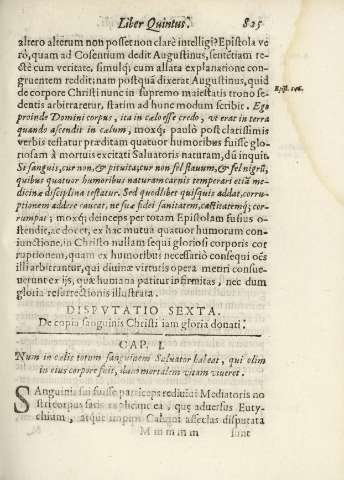 Liber Quintus. 825
altero alterum non posset non clarè intelligi? Epistola ve
rò, quam ad Cosentium dedit Augustinus, sentétiam re-
ctè cum veritate, simulq; cum allata explanatione con-
gruentem reddit: nam postquā dixerat Augustinus, quid
de corpore Christi nunc in supremo maiestatis trono se-
dentis arbitraretur, statim ad hunc modum scribit. Ego
Epist. 146.
proinde Domini corpus, ita in cælo esse credo, vt erat in terra
quando ascendit in cælum, moxq; paulò post clarissimis
verbis testatur præditam quatuor humoribus fuisse glo-
riosam à mortuis excitati Saluatoris naturam, dū inquit.
Si sanguis, cur non, & pituita; cur non fel flauum, & fel nigrū,
quibus quatuor humoribus naturam carnis temperari etiā me-
dicinæ disciplina testatur. Sed quodlibet quisquis addat, corru-
ptionem addere caueat, ne suæ fidei sanitatem, castitatemq; cor-
rumpas; moxq; deinceps per totam Epistolam fusius o-
stendit, ac docet, ex hac mutua quatuor humorum con-
iunctione, in Christo nullam sequi gloriosi corporis cor
ruptionem, quam ex humoribus necessariò consequi oēs
illi arbitrantur, qui diuinæ virtutis opera metiri consue-
uerunt ex ijs, quæ humana patitur infirmitas, nec dum
gloria resurrectionis illustrata.
DISPVTATIO SEXTA.
De copia sanguinis Christi iam gloria donati.
CAP. I.
Num in cælis totum sanguinem Saluator habeat, qui olim
in eius corpore fuit, dum mortalem vitam viueret.
SAnguinis fuisse participes rediuiui Mediatoris no
stri corpus satis explicuc ea, quę aduersus Euty-
chium, atque impium Caluini asseclas disputata
M m m m m sunt